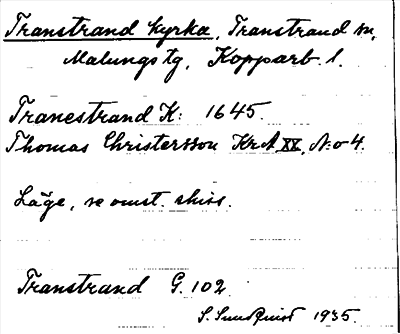 Transtrand kyrka, Transtrand sn,
Malungs tg, Kopparb. l.
Tranestrand K: 1645.
Thomas Christersson KrA XX, N:o 4.
Läge, se omst. skiss.
Transtrand G. 102
S. Sundquist 1935.